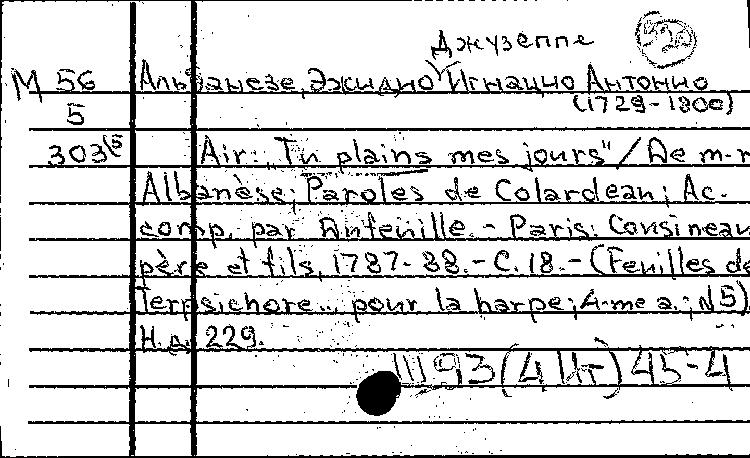 Джузеппе
М 56 Альбанезе, Эжидио Игнацио Антонио
5 (1729-1800)
303(5 Air: "Tu plains mes jours" / De m-r
Albanèse; Paroles de Colardeau; Ac-
comp. par Anteuille. - Paris: Cousineau
père et fils, 1787-88. - С. 18. - (Feuilles de
Terpsichore... pour la harpe; 4-me a.; N5).
Н. д. 229.
Ш93(4Ит)45-4